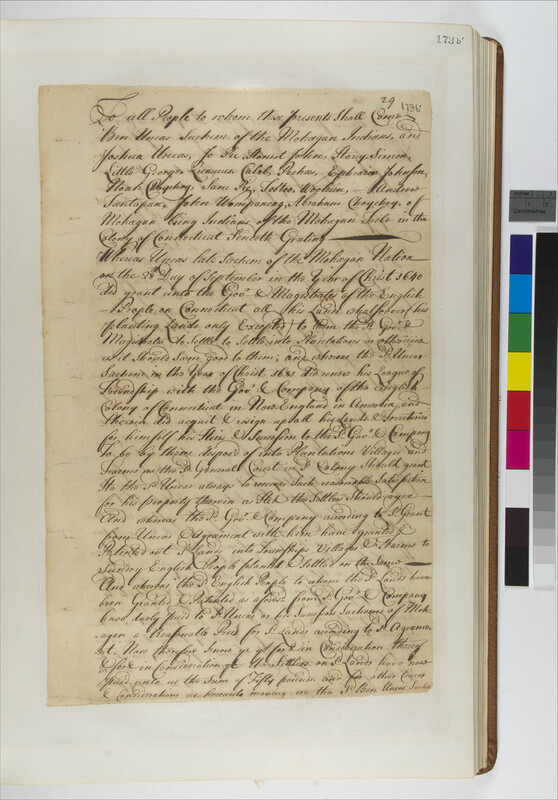 1738
29 1738
To all People to whom these presents Shall Come
Ben Uncas Sachem of the Mohagan Indians, and
Joshua Uncas, Jo Pie, Honest John, Simon,
Little George, Caleb, Pechas, Ephraim Johnson,
Noah Choychoy, Sam Pie, Andrew
Santapan, John Wompaneag, Abraham Choychoy, of
Mohagan being Indians of the Mohagan Tribe in the
Colony of Connecticut Sendeth Greting
Whereas Uncas late Sachem of the Mohagan Nation
on the 28 Day of September in the Year of Christ 1640
did grant unto the Govr & Magistrates of the English
People on Connecticut all his Lands whatsoever (his
planting Lands only Excepted) to them the sd Govr &
Magistrates to Settle to Settle into Plantations or otherwise
as it Should Seem good to them; and whereas the sd Uncas
Sachem in the Year of Christ 1681 did renew his League of
Friendship with the Govr & Company of the English
Colony of Connecticut in New England in America and
therein did acquit & resign up all his Lands & Territories
for himself his Heirs & Successors to the sd Govr & Company
to be by them disposed of into Plantations Villages and
Farms as the sd General Court in sd Colony Should grant
the sd Uncas always to receive Such reasonable Satisfaction
for his Property therein as He & the Settlers Should agree
And whereas the sd Govr & Company according to sd Grant
from Uncas & Agreement with him have granted &
Patented out sd Lands into Townships Villages & Farms to
Sundry English People planted & Settled on the Same
And whereas the sd English People to whom the sd Lands have
been Granted & Patented as aforesd from sd Govr & Company
have duely paid to sd Uncas or his Successors Sachems of Moh-
agan a Reasonable Price for sd Lands according to sd Agreeme-
nt. Now therefore Know ye yt for & in Consideration thereof
& for & in Consideration yt the Settlers on sd Lands have now
paid unto us the Sum of Fifty pounds and for other Causes
& Considerations us hereunto moving we the sd Ben Uncas Sachem
Inches
Centimetres